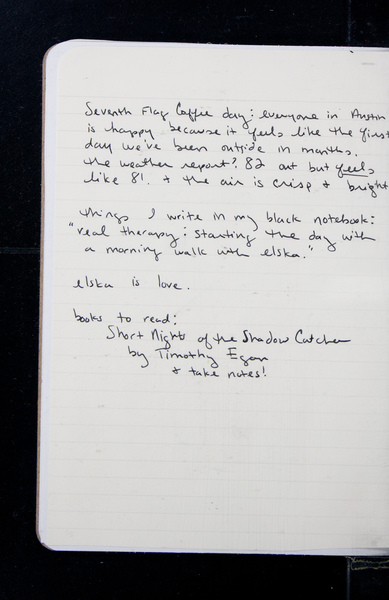 Seventh Flag Coffee day: everyone in Austin
is happy because it feels like the first
day we've been outside in months.
the weather report? 82 out but feels
like 81. + the air is crisp + bright
things I write in my black notebook:
"real therapy: starting the day with
a morning walk with elska."
elska is love.
books to read:
Short Night of the Shadow Catcher
by Timothy Egan
+ take notes!